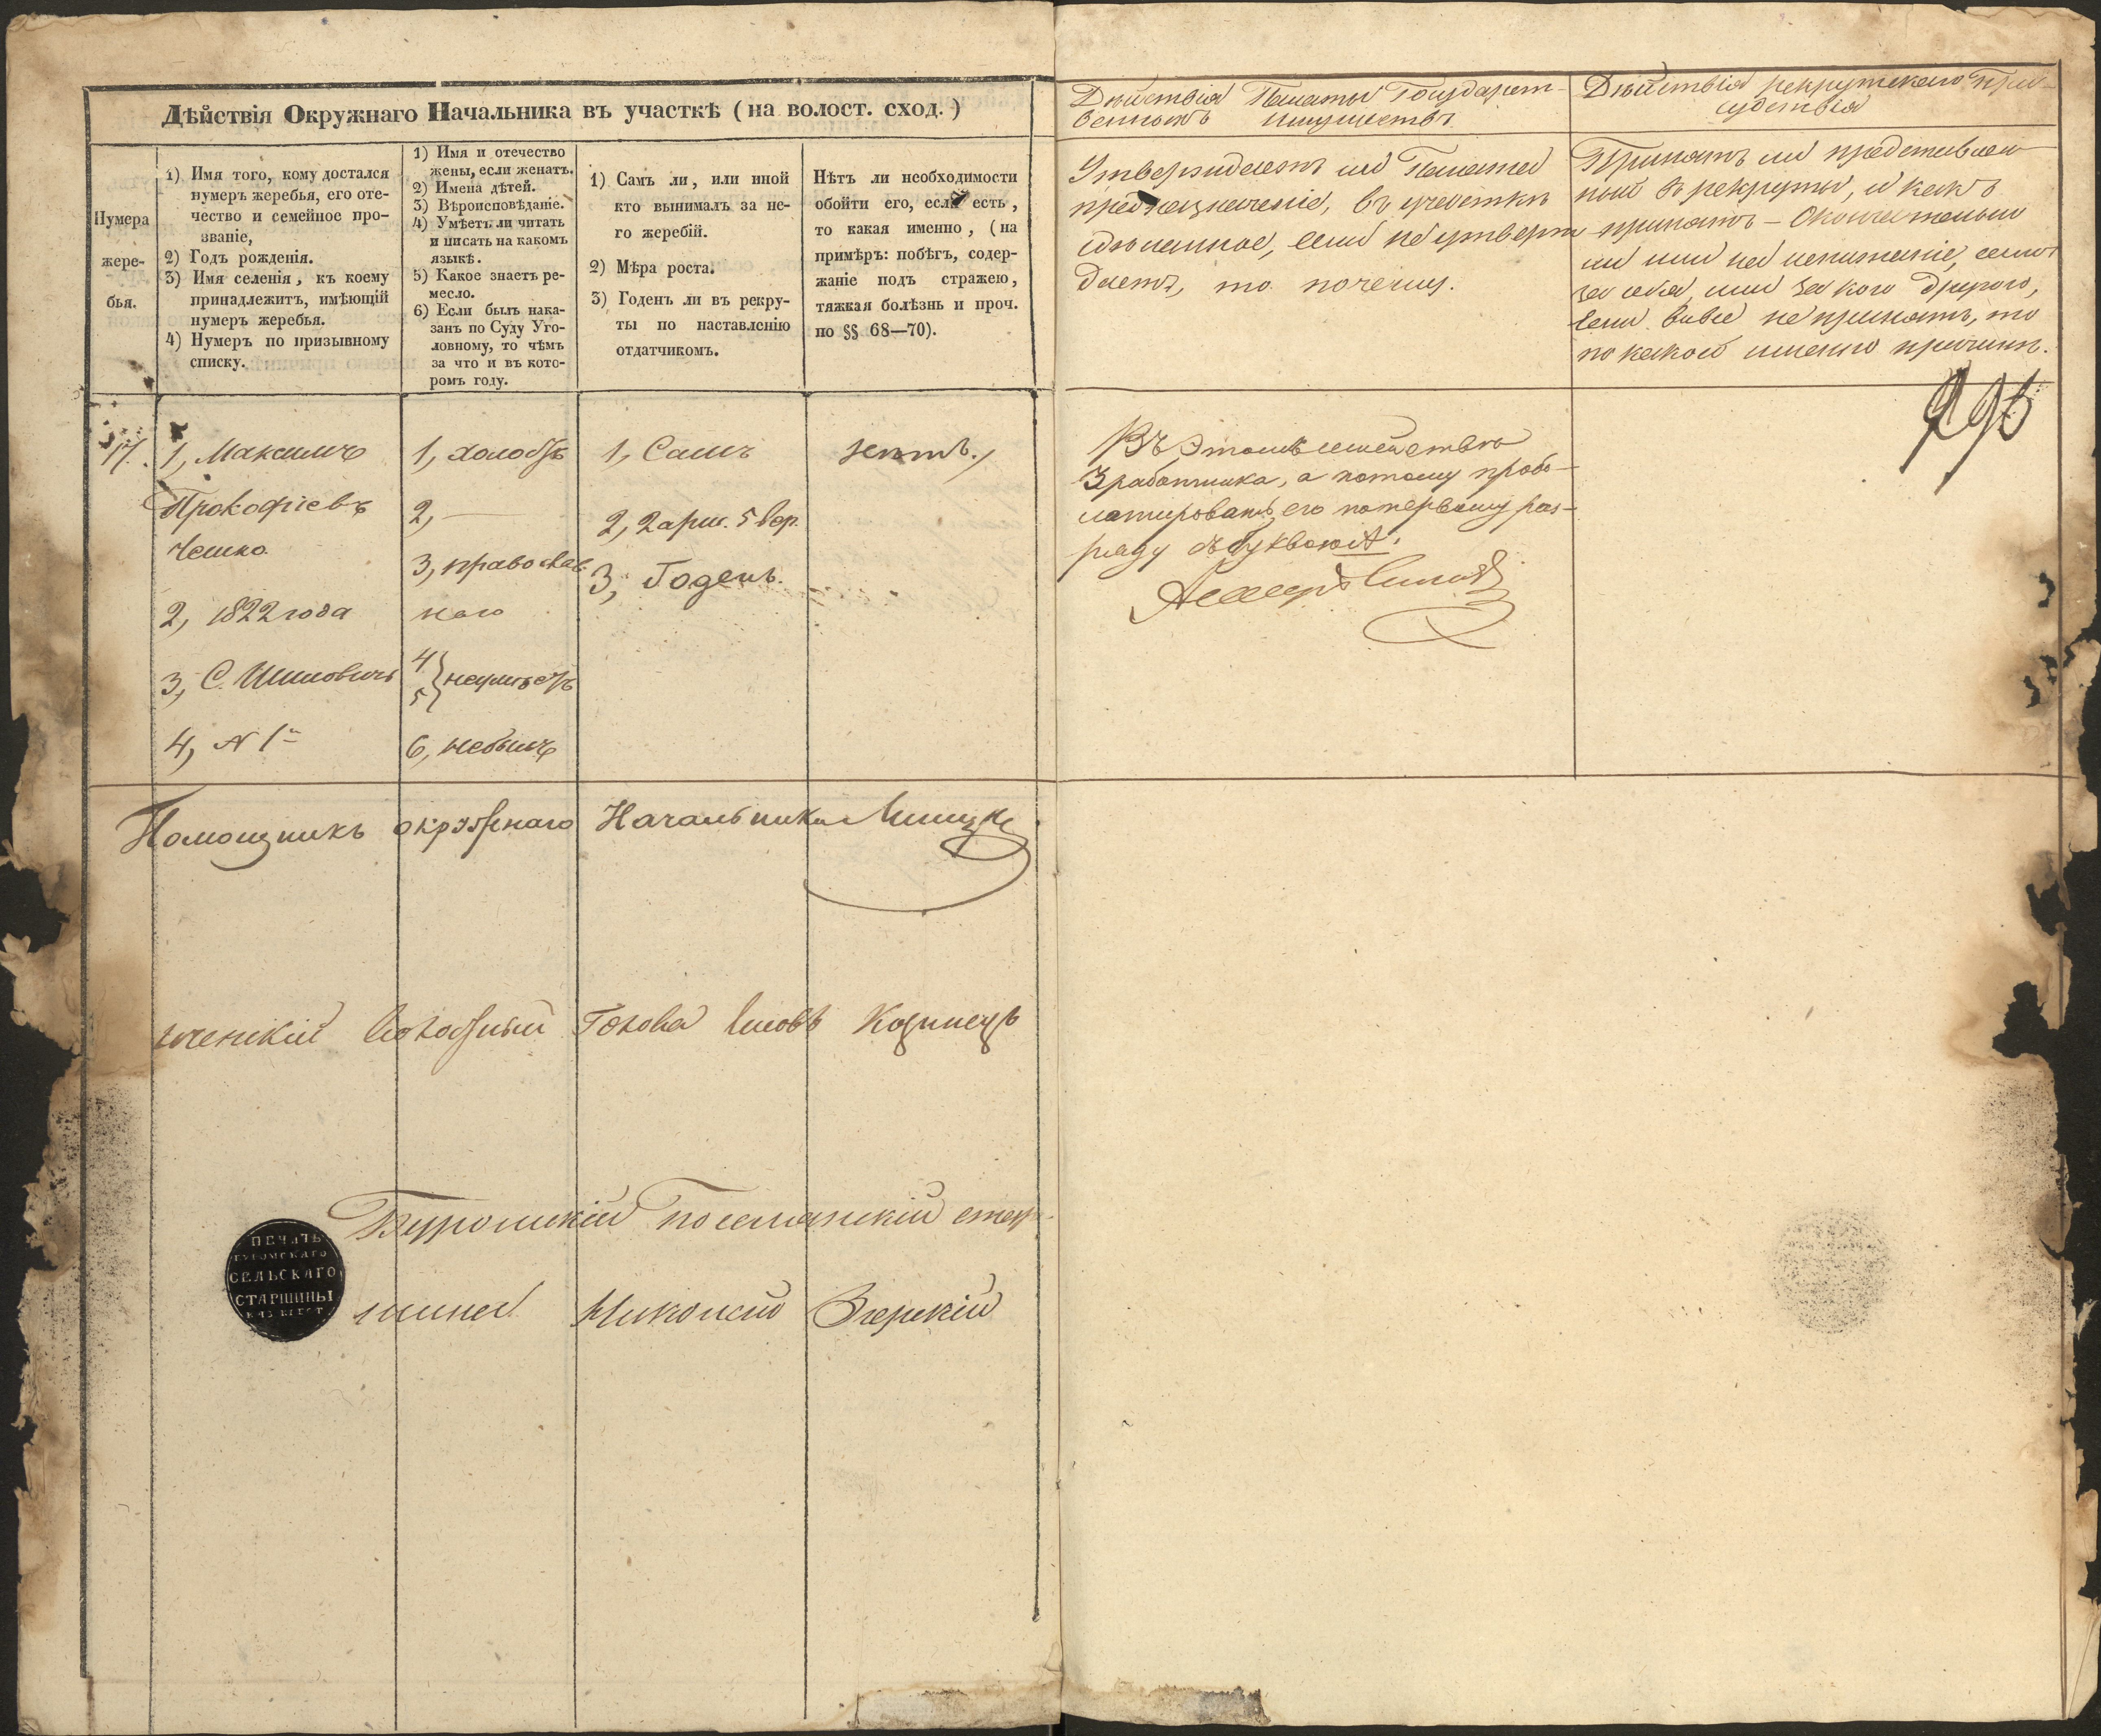 Дѣйствія Окружнаго Начальника въ участкѣ (на волост. сход.)
Нумера
жере-
бья.
1) Имя того, кому достался
нумеръ жеребья, его оте-
чество и семейное про-
званіе,
2) Годъ рожденія.
3) Имя селенія, къ коему
принадлежитъ, имѣющій
нумеръ жеребья.
4) Нумеръ по призывному
списку.
1) Имя и отечество
жены, если женатъ.
2) Имена дѣтей.
3) Вѣроисповѣданіе.
4) Умѣетъ ли читать
и писать на какомъ
языкѣ.
5) Какое знаетъ ре-
месло.
6) Если былъ нака-
занъ по Суду Уго-
ловному, то чѣмъ
за что и въ кото-
ромъ году.
1) Самъ ли, или иной
кто вынималъ за не-
го жеребій.
2) Мѣра роста.
3) Годенъ ли въ рекру-
ты по наставленію
отдатчикомъ.
Нѣтъ ли необходимости
обойти его, если есть,
то какая именно, (на
примѣръ: побѣгъ, содер-
жаніе подъ стражею,
тяжкая болѣзнь и проч.
по §§ 68—70).
17.
1, Максимъ
Прокофіевъ
Чешко
2, 1822 года
3, С.
4, N 1й
1, холостъ
2, —
3, православ
наго
4
5 } неумѣетъ
6, небылъ
1, Самъ
2, 2 арш. 5 вер.
3, Годенъ.
нѣтъ.
Помощникъ окружнаго Начальника
Голова
Николай
ПЕЧАТЬ
СЕЛЬСКАГО
СТАРШИНЫ
Дѣйствія Палаты Государст-
венныхъ имуществъ
Утверждаетъ ли Палата
предназначеніе, въ участкѣ
сдѣланное, если не утверж
даетъ, то почему.
Въ этомъ семействѣ
3 работника, а потому
его по первому раз-
ряду
Дѣйствія рекрутскаго При-
судствія
Принятъ ли представлен
ный въ рекруты, и какъ
принятъ — Окончательно
ли или на испытаніе,
за себя, или за кого другого,
если вовсе не принятъ, то
по какой именно причинѣ.